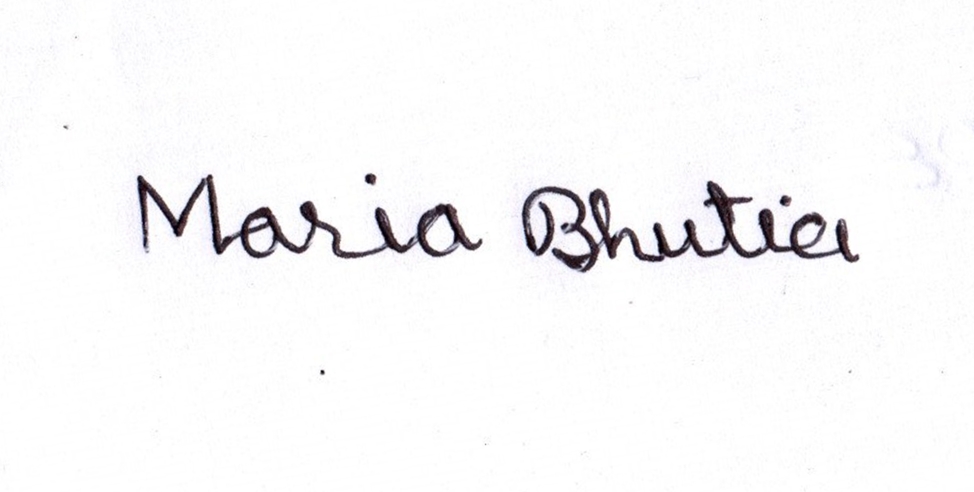 Maria Bhutia